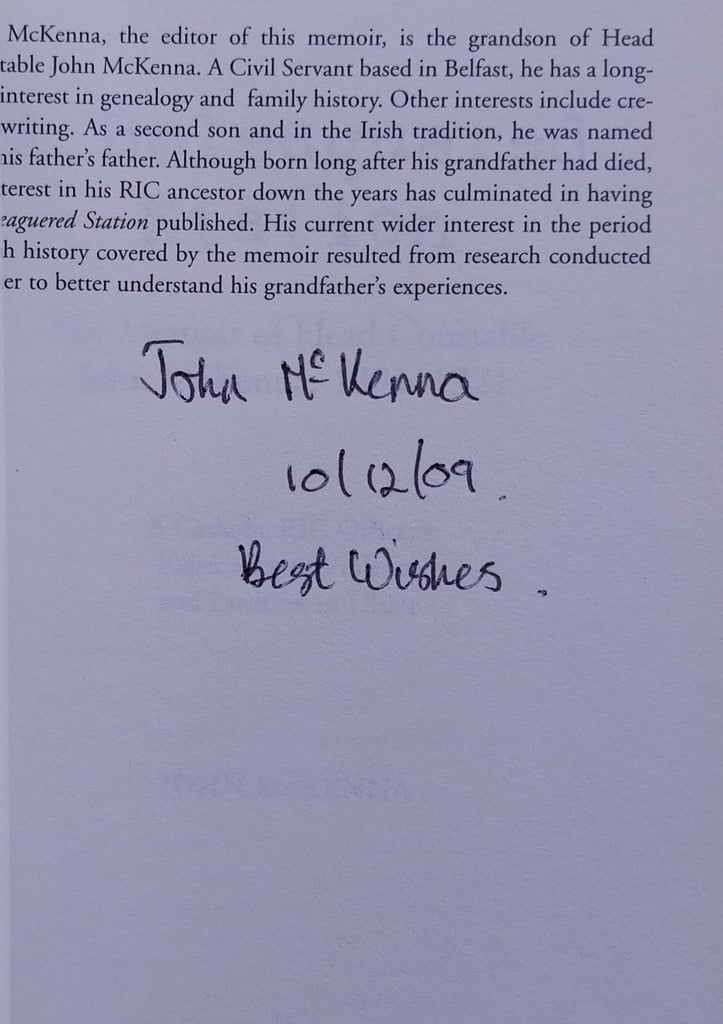 McKenna, the editor of this memoir, is the grandson of Head
table John McKenna. A Civil Servant based in Belfast, he has a long-
interest in genealogy and family history. Other interests include cre-
writing. As a second son and in the Irish tradition, he was named
his father's father. Although born long after his grandfather had died,
terest in his RIC ancestor down the years has culminated in having
eaguered Station published. His current wider interest in the period
h history covered by the memoir resulted from research conducted
er to better understand his grandfather's experiences.
John McKenna
10/12/09.
Best Wishes.